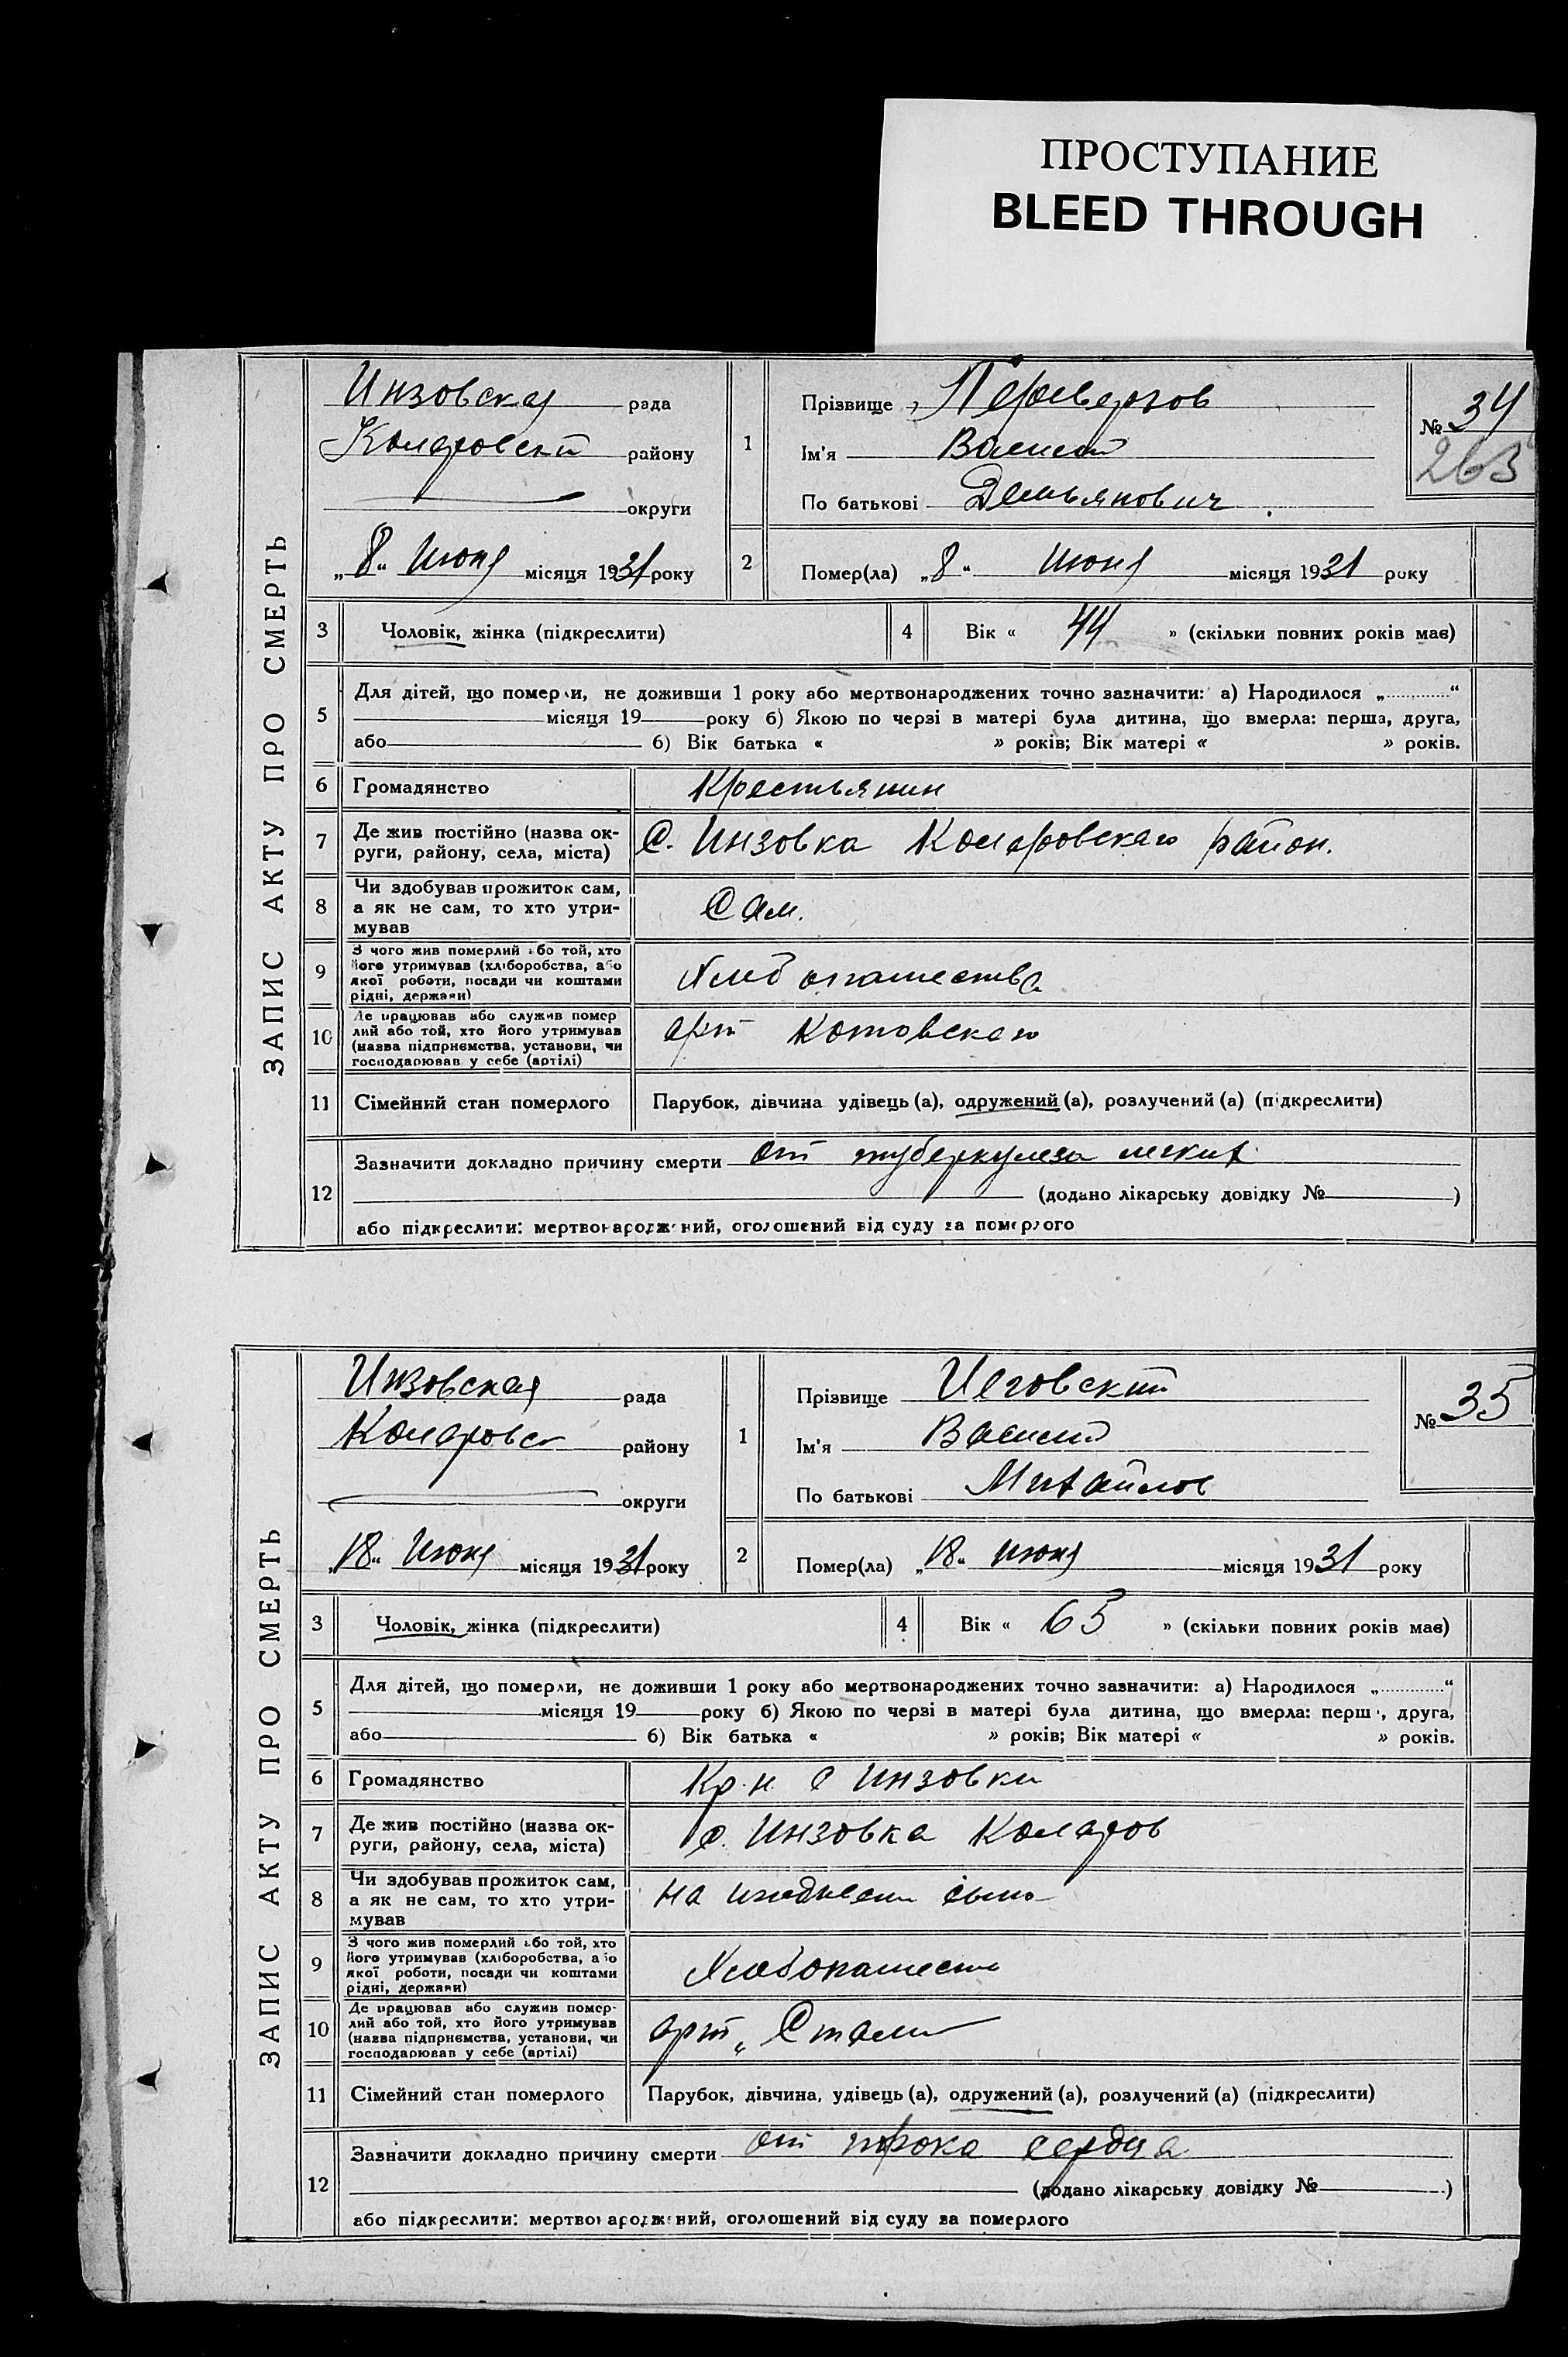 ПРОСТУПАНИЕ
BLEED THROUGH
ЗАПИС АКТУ ПРО СМЕРТЬ
Инзовская рада
Комаровский району
округи
„8“ Июня місяця 1931 року
1
Прізвище
Ім'я Василий
По батькові Демьянович
№ 34
263
2
Помер(ла) „8“ Июня місяця 1931 року
3 Чоловік, жінка (підкреслити)
4 Вік « 44 » (скільки повних років має)
5
Для дітей, що померли, не доживши 1 року або мертвонароджених точно зазначити: а) Народилося „ “
місяця 19 року б) Якою по черзі в матері була дитина, що вмерла: перша, друга,
або б) Вік батька « » років; Вік матері « » років.
6 Громадянство Крестьянин
7
Де жив постійно (назва ок-
руги, району, села, міста)
С. Инзовка Комаровского район.
8
Чи здобував прожиток сам,
а як не сам, то хто утри-
мував
Сам.
9
З чого жив померлий або той, хто
його утримував (хліборобства, або
якої роботи, посади чи коштами
рідні, держави)
10
Де працював або служив помер
лий або той, хто його утримував
(назва підприємства, установи, чи
господарював у себе (артілі)
арт Котовского
11 Сімейний стан померлого Парубок, дівчина удівець (а), одружений (а), розлучений (а) (підкреслити)
12
Зазначити докладно причину смерти от туберкулеза легких
(додано лікарську довідку № )
або підкреслити: мертвонароджений, оголошений від суду за померлого
ЗАПИС АКТУ ПРО СМЕРТЬ
Инзовская рада
Комаровск району
округи
„18“ Июня місяця 1931 року
1
Прізвище
Ім'я Василий
По батькові Михайлов
№ 35
2
Помер(ла) „18“ июня місяця 1931 року
3 Чоловік, жінка (підкреслити)
4 Вік « 65 » (скільки повних років має)
5
Для дітей, що померли, не доживши 1 року або мертвонароджених точно зазначити: а) Народилося „ “
місяця 19 року б) Якою по черзі в матері була дитина, що вмерла: перш , друга,
або б) Вік батька « » років; Вік матері « » років.
6 Громадянство Кр.н. с Инзовки
7
Де жив постійно (назва ок-
руги, району, села, міста)
с. Инзовка Комаров
8
Чи здобував прожиток сам,
а як не сам, то хто утри-
мував
на сына
9
З чого жив померлий або той, хто
його утримував (хліборобства, або
якої роботи, посади чи коштами
рідні, держави)
10
Де працював або служив помер-
лий або той, хто його утримував
(назва підприємства, установи, чи
господарював у себе (артілі)
арт „Сталин
11 Сімейний стан померлого Парубок, дівчина, удівець (а), одружений (а), розлучений (а) (підкреслити)
12
Зазначити докладно причину смерти от порока сердца
(додано лікарську довідку № )
або підкреслити: мертвонароджений, оголошений від суду за померлого